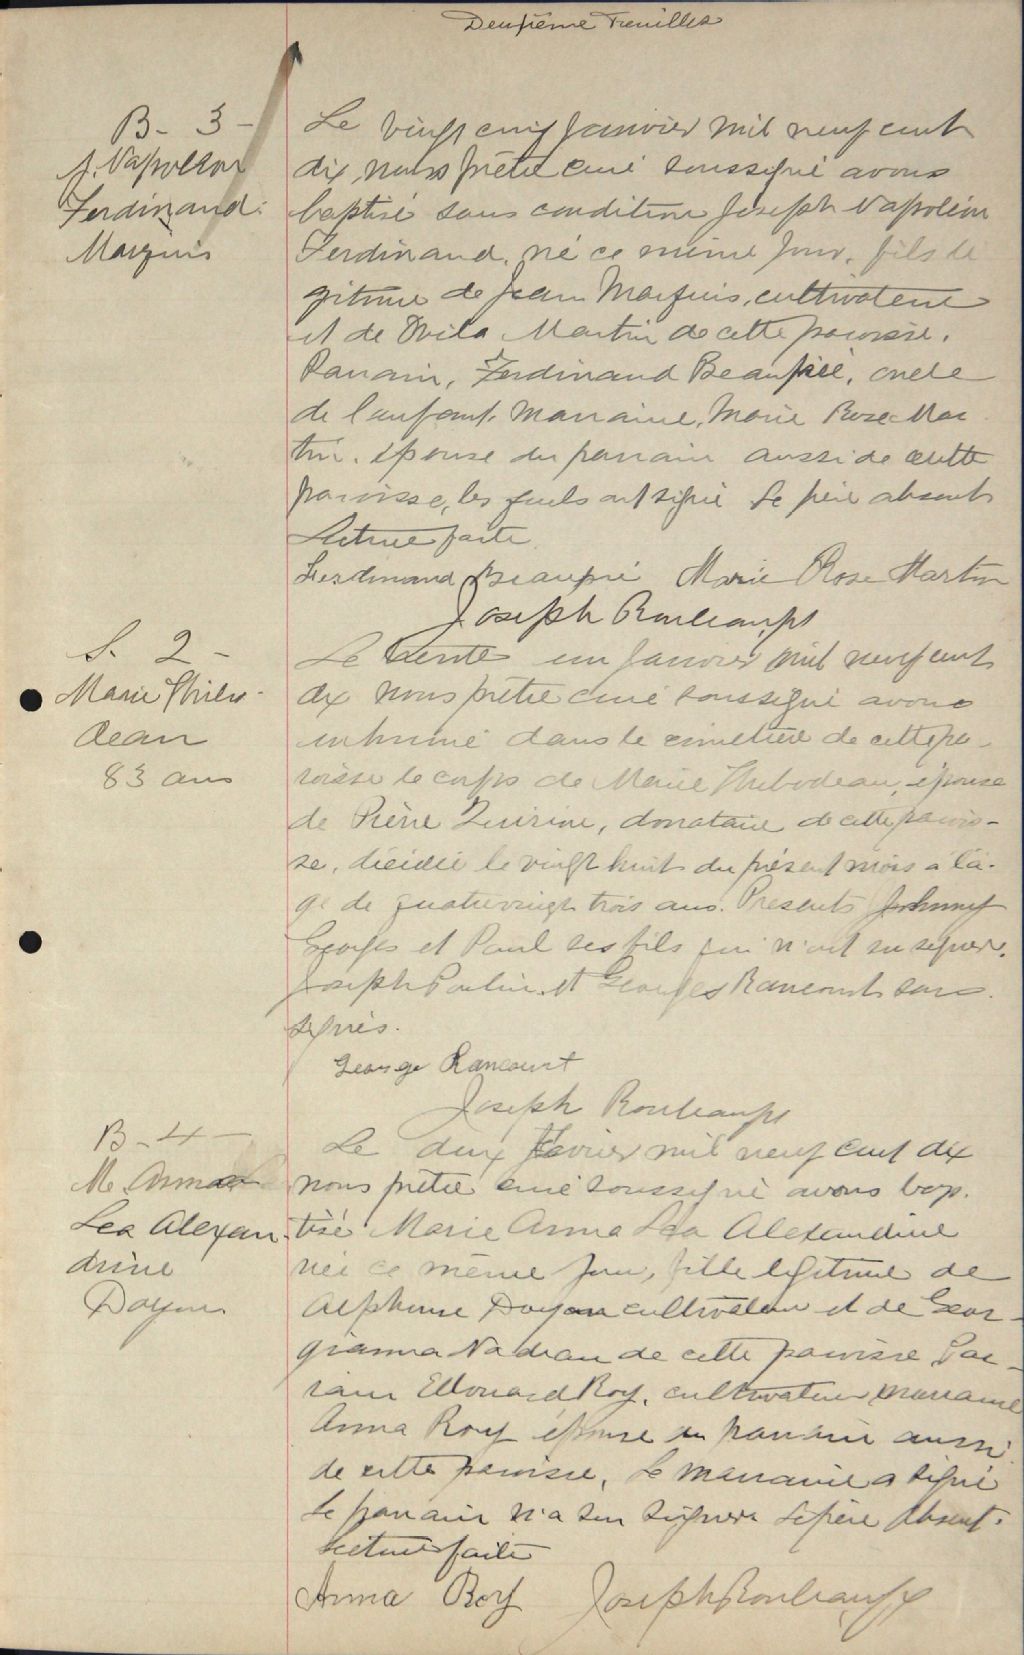 Deuxième Feuillet
B- 3 -
J. Napoléon
Ferdinand
Marquis
Le vingt cinq janvier mil neuf cent
dix, nous prêtre curé soussigné avons
baptisé sous condition Joseph Napoléon
Ferdinand, né ce même jour, fils lé
gitime de Jean Marquis, cultivateur
et de Martin de cette paroisse.
Parrain, Ferdinand Beaupré, oncle
de l'enfant. Marraine, Marie Rose Mar
tin, épouse du parrain aussi de cette
paroisse, les quels ont signé Le père absent
Lecture faite
Ferdinand Beaupré Marie Rose Martin
Joseph
S. 2 -
Marie Thibo-
deau
83 ans
Le trente un janvier mil neuf cent
dix nous prêtre curé soussigné avons
inhumé dans le cimetière de cette pa-
roisse le corps de Marie Thibodeau, épouse
de Pierre Quirion, donataire de cette parois-
se, décédée le vingt huit du présent mois à l'â-
ge de quatrevingt trois ans. Présents Johnny
Georges et Paul ses fils qui n'ont su signer.
Joseph Poulin et Georges Rancourt sous
signés.
George Rancourt
Joseph
B - 4 -
M. Anna
Lea Alexan-
drine
Doyon
Le deux février mil neuf cent dix
nous prêtre curé soussigné avons bap-
tisé Marie Anna Lea Alexandrine
née ce même jour, fille légitime de
Alphonse Doyon cultivateur et de Geor-
gianna Nadeau de cette paroisse, Par-
rain Edouard Roy, cultivateur, marraine
Anna Roy épouse du parrain aussi
de cette paroisse, La marraine a signé
Le parrain n'a su signer. Le père absent.
Lecture faite
Anna Roy Joseph